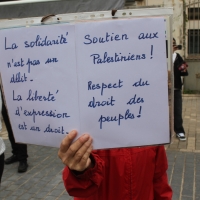 La solidarité
n'est pas un
délit.
La liberté
d'expression
est un droit.
Soutien aux
Palestiniens !
Respect du
droit des
peuples !